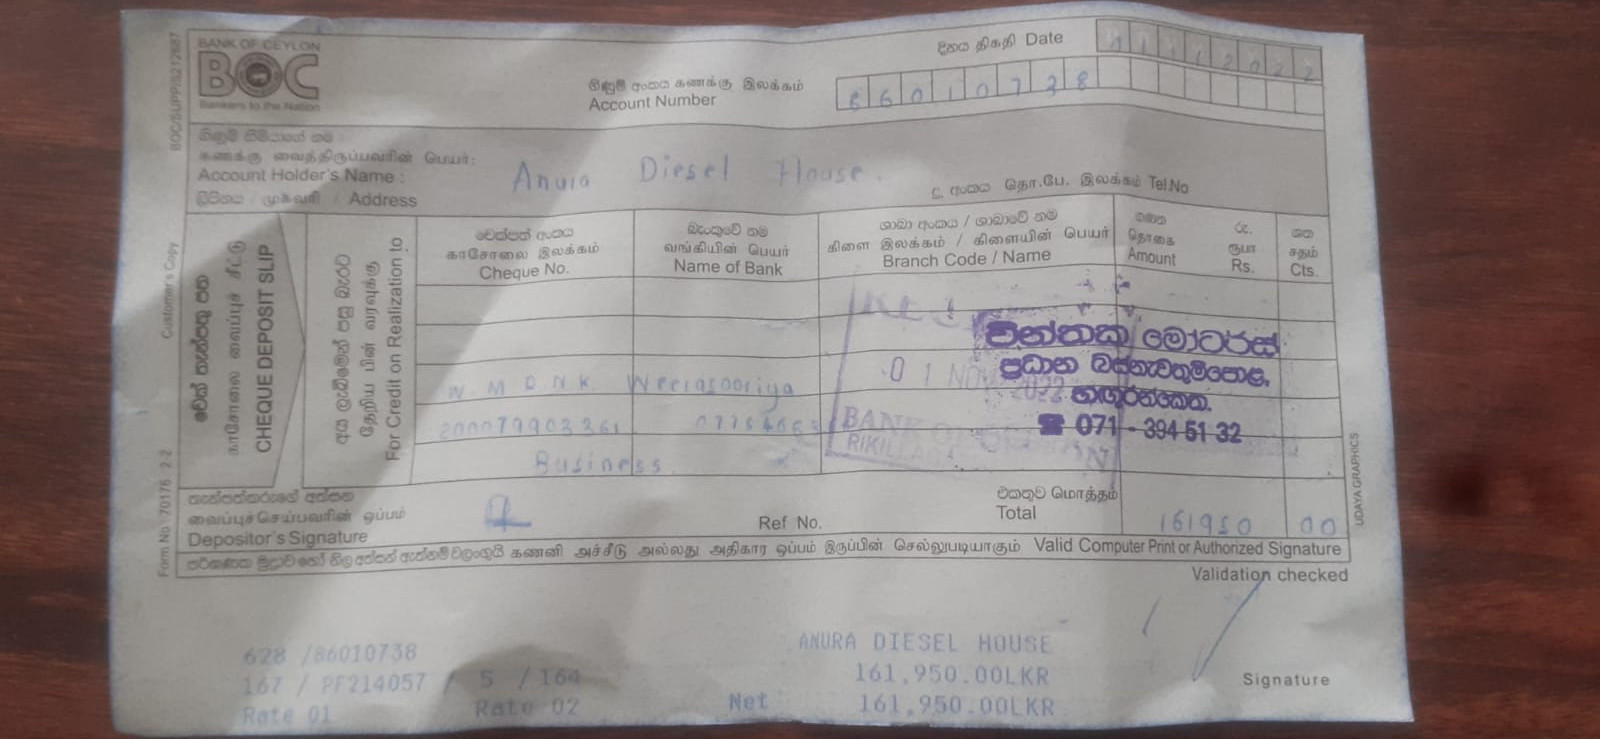 BANK OF CEYLON
BOC
Bankers to the Nation
දිනය திகதி Date
ගිණුම් අංකය கணக்கு இலக்கம்
Account Number
86010738
ගිණුම් හිමියාගේ නම
கணக்கு வைத்திருப்பவரின் பெயர்:
Account Holder's Name : Anura Diesel House.
ලිපිනය / முகவரி / Address
දු. අංකය தொ.பே. இலக்கம் Tel.No
Customer's Copy
චෙක් තැන්පතු පත
காசோலை வைப்புச் சீட்டு
CHEQUE DEPOSIT SLIP
අය ලැබීමෙන් පසු බැරට
தேறிய பின் வரவுக்கு
For Credit on Realization to
චෙක්පත් අංකය
காசோலை இலக்கம்
Cheque No.
බැංකුවේ නම
வங்கியின் பெயர்
Name of Bank
ශාඛා අංකය / ශාඛාවේ නම
கிளை இலக்கம் / கிளையின் பெயர்
Branch Code / Name
ගණන
தொகை
Amount
රු.
ரூபா
Rs.
ශත
சதம்
Cts.
W. M D N K Weerasooriya
200079903361
Business
01 NOV 2022
BANK OF CEYLON
චින්තක මෝටර්ස්
ප්‍රධාන බස්නැවතුම්පොළ,
හඟුරන්කෙත.
☎ 071 - 394 51 32
තැන්පත්කරුගේ අත්සන
வைப்புச்செய்பவரின் ஒப்பம்
Depositor's Signature
Ref No.
එකතුව மொத்தம்
Total
161950 00
கணனி அச்சீடு அல்லது அதிகார ஒப்பம் இருப்பின் செல்லுபடியாகும் Valid Computer Print or Authorized Signature
Validation checked
Form No 70176 2.2
UDAYA GRAPHICS
628 /86010738 ANURA DIESEL HOUSE
167 / PF214057 / 5 / 164 161,950.00LKR
Rate 01 Rate 02 Net 161,950.00LKR
Signature